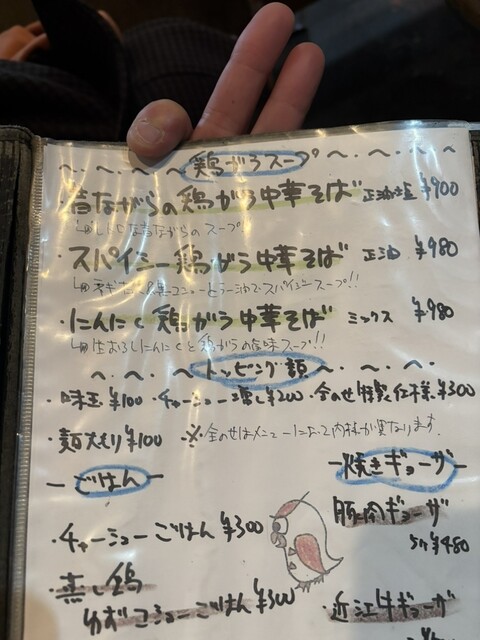 鶏がらスープ
・昔ながらの鶏がら中華そば 正油・塩 ¥900
昔ながらのスープ
・スパイシー鶏がら中華そば 正油 ¥980
スパイシースープ!!
・にんにく鶏がら中華そば ミックス ¥980
生おろしにんにくと鶏がらの旨味スープ!!
トッピング類
・味玉¥100 ・チャーシュー増し¥200 ・全のせ特製仕様¥300
・麺大もり¥100 ※全のせはメニューによって内容が異なります。
ごはん
・チャーシューごはん ¥300
・蒸し鶏
ゆずコショーごはん¥300
焼きギョーザ
・豚肉ギョーザ
5ヶ¥480
・近江牛ギョーザ